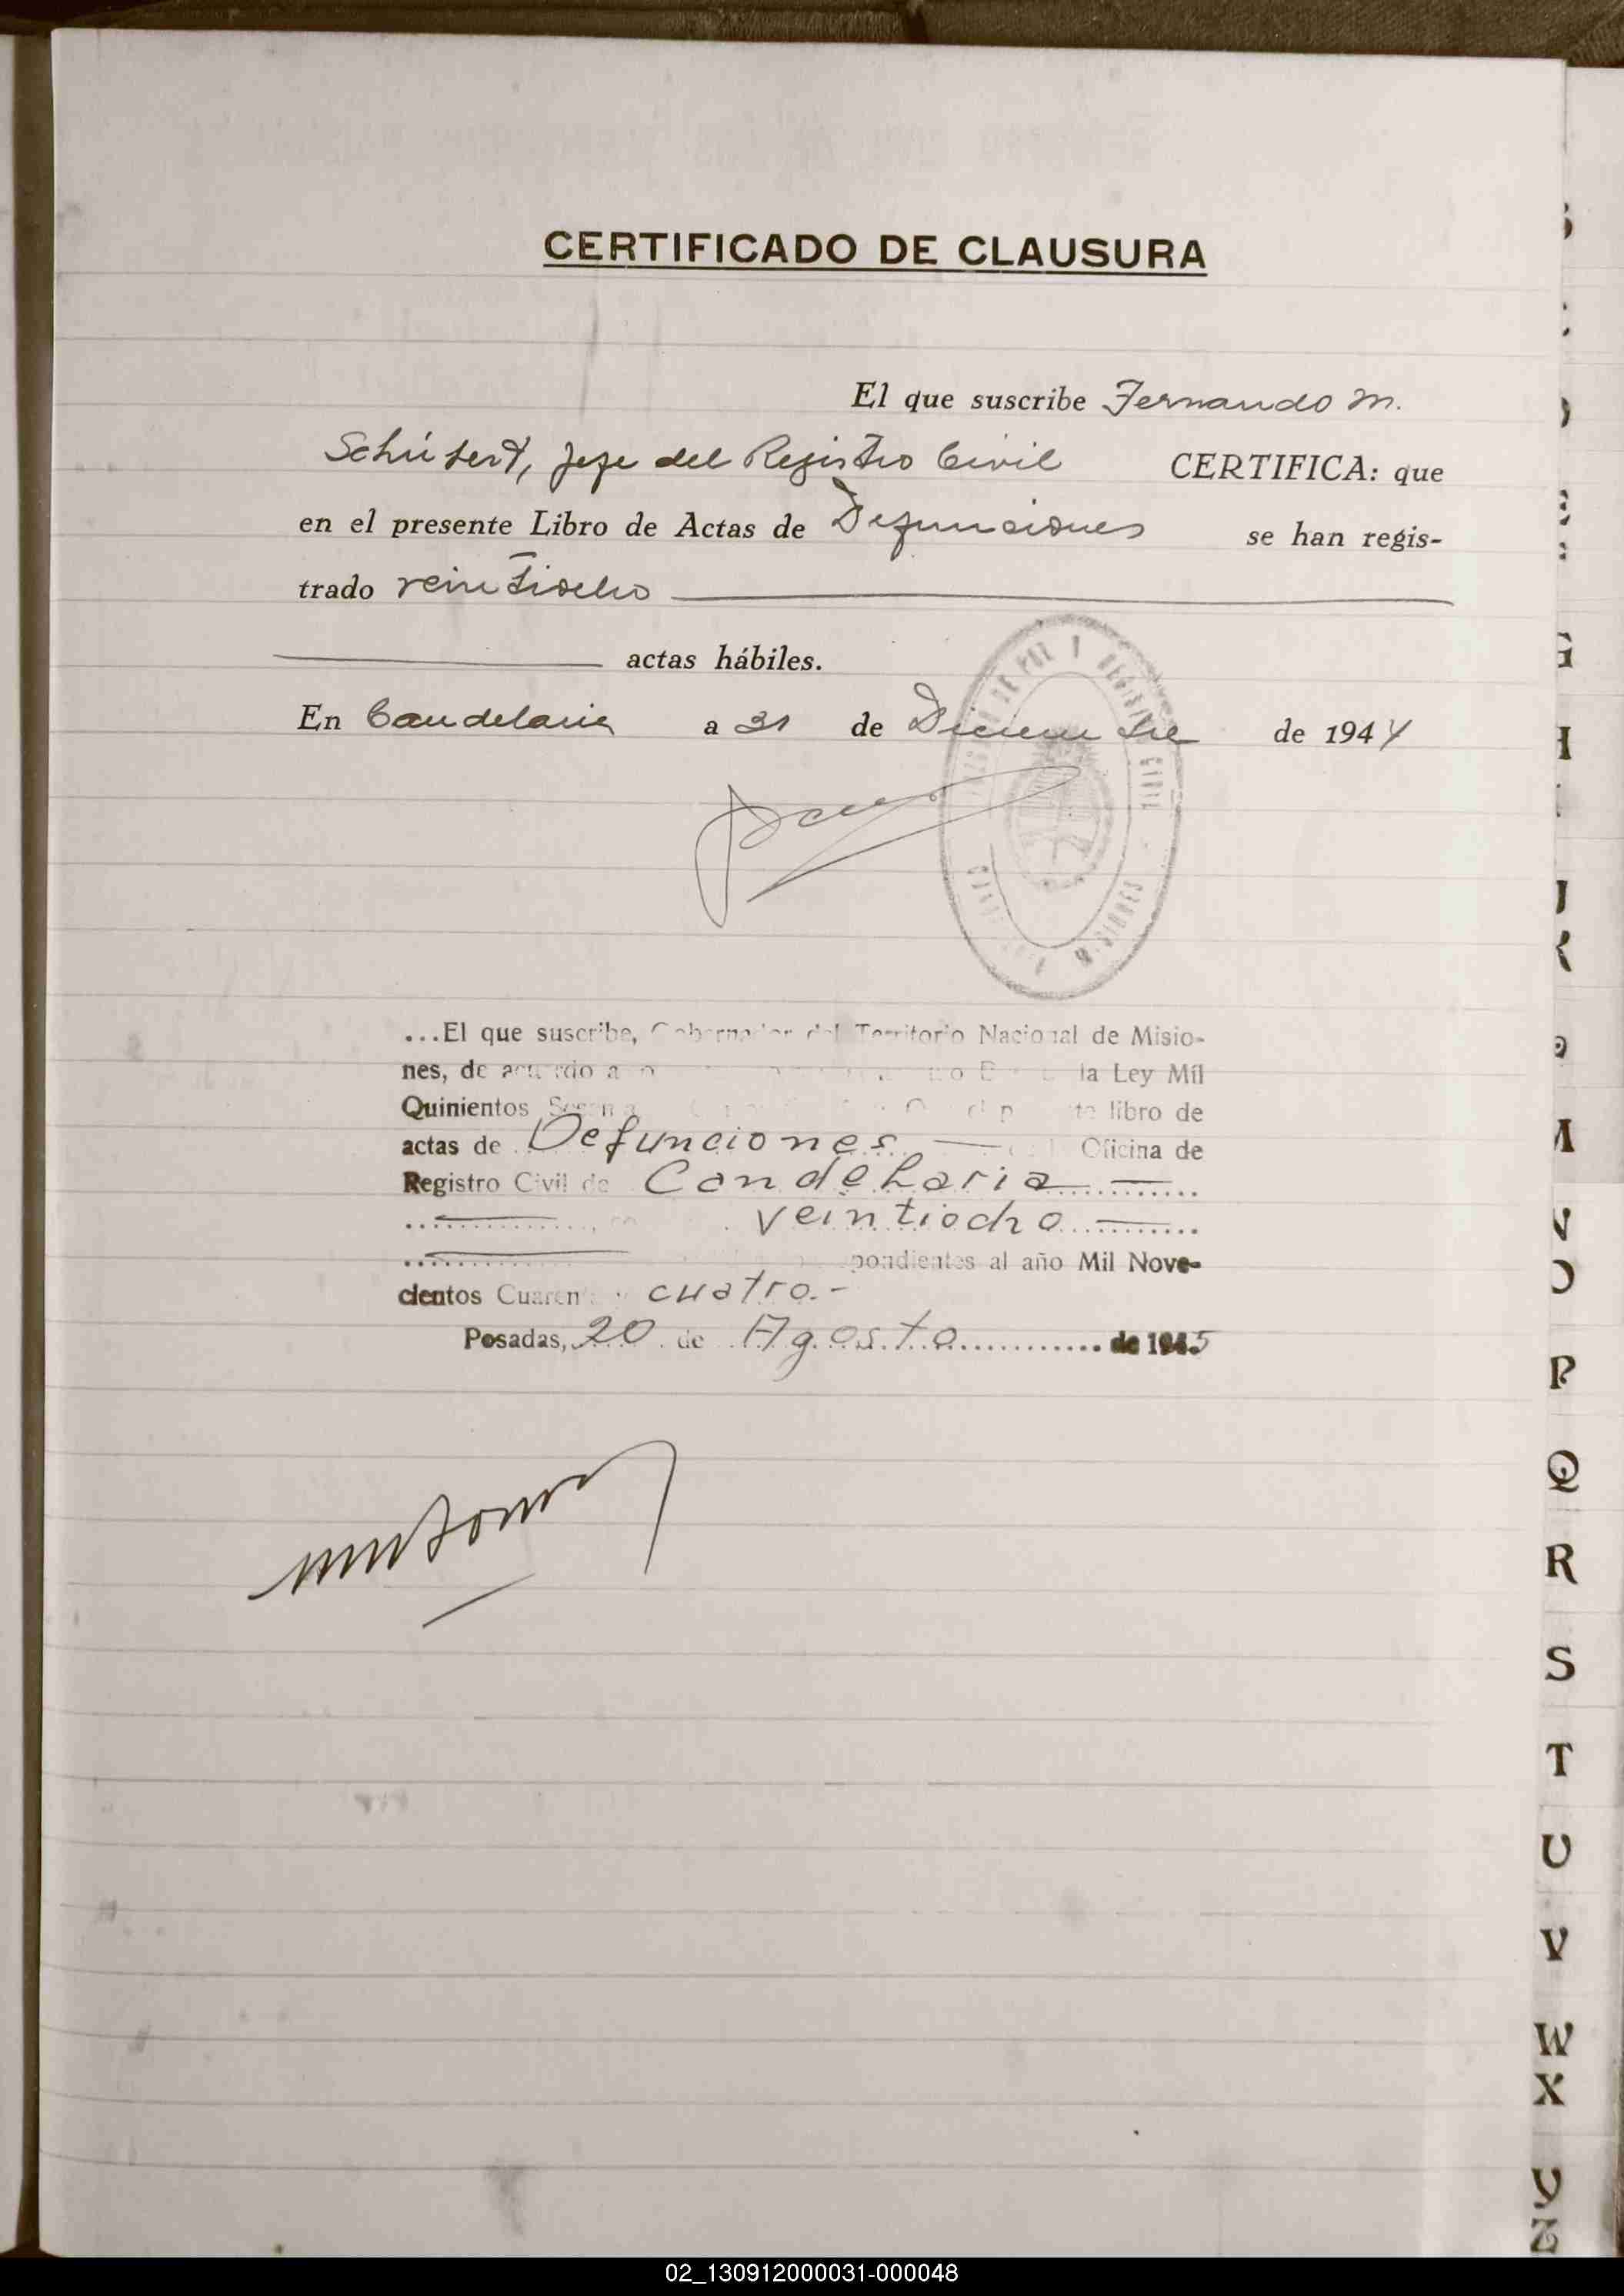 CERTIFICADO DE CLAUSURA
El que suscribe Fernando M.
Schúbert, Jefe del Registro Civil CERTIFICA: que
en el presente Libro de Actas de Defunciones se han regis-
trado veintiocho
actas hábiles.
En Candelaria a 31 de Diciembre de 1944
...El que suscribe, Gobernador del Territorio Nacional de Misio-
nes, de acuerdo a la Ley Mil
Quinientos libro de
actas de Defunciones Oficina de
Registro Civil de Candelaria
veintiocho
pondientes al año Mil Nove-
cientos Cuarenta y cuatro.-
Posadas, 20 de Agosto de 1945
G
H
J
K
M
N
O
P
Q
R
S
T
U
V
W
X
Y
Z
02_130912000031-000048